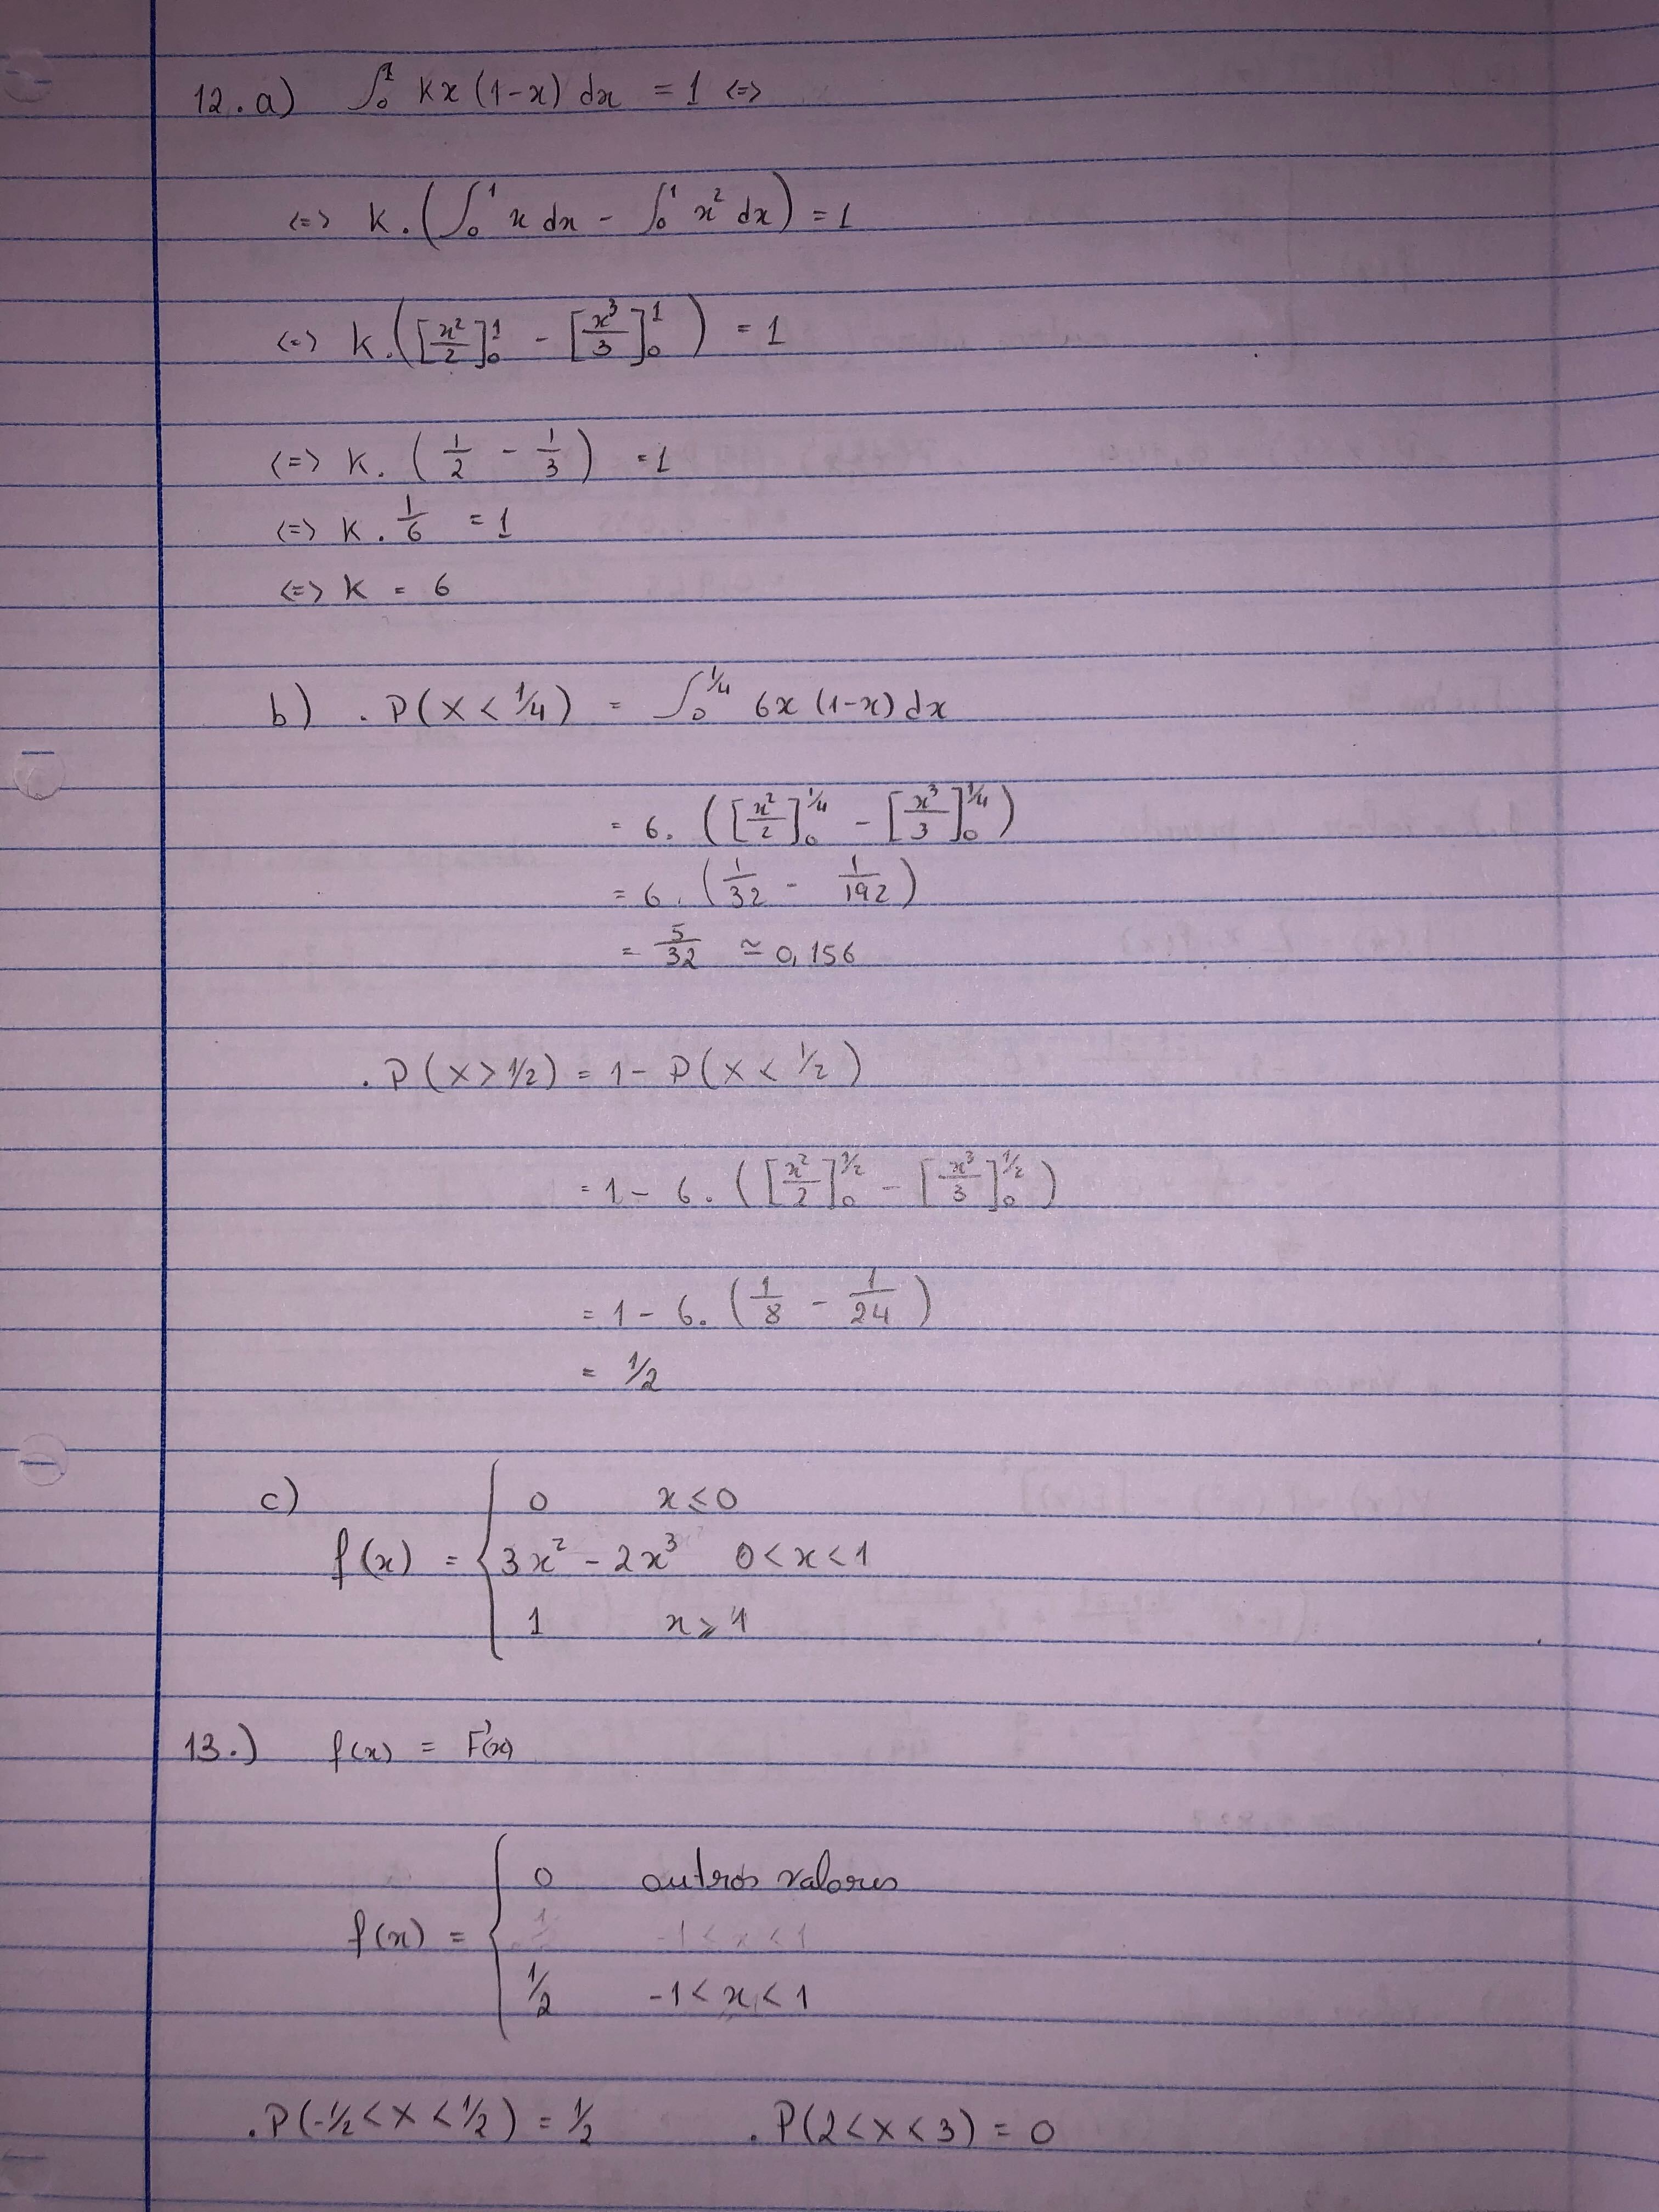 12. a) ∫₀¹ Kx (1-x) dx = 1 <=>
<=> K. (∫₀¹ x dx - ∫₀¹ x² dx) = 1
<=> K. ([x²/2]₀¹ - [x³/3]₀¹) = 1
<=> K. (1/2 - 1/3) = 1
<=> K. 1/6 = 1
<=> K = 6
b) . P(X < 1/4) = ∫₀^1/4 6x (1-x) dx
= 6. ([x²/2]₀^1/4 - [x³/3]₀^1/4)
= 6. (1/32 - 1/192)
= 5/32 ≃ 0,156
. P(X > 1/2) = 1 - P(X < 1/2)
= 1 - 6. ([x²/2]₀^1/2 - [x³/3]₀^1/2)
= 1 - 6. (1/8 - 1/24)
= 1/2
c)
0 x ≤ 0
f(x) = { 3x² - 2x³ 0 < x < 1
1 x ⩾ 1
13.) f(x) = F'(x)
0 outros valores
f(x) = {
1/2 -1 < x < 1
. P(-1/2 < X < 1/2) = 1/2 . P(2 < X < 3) = 0